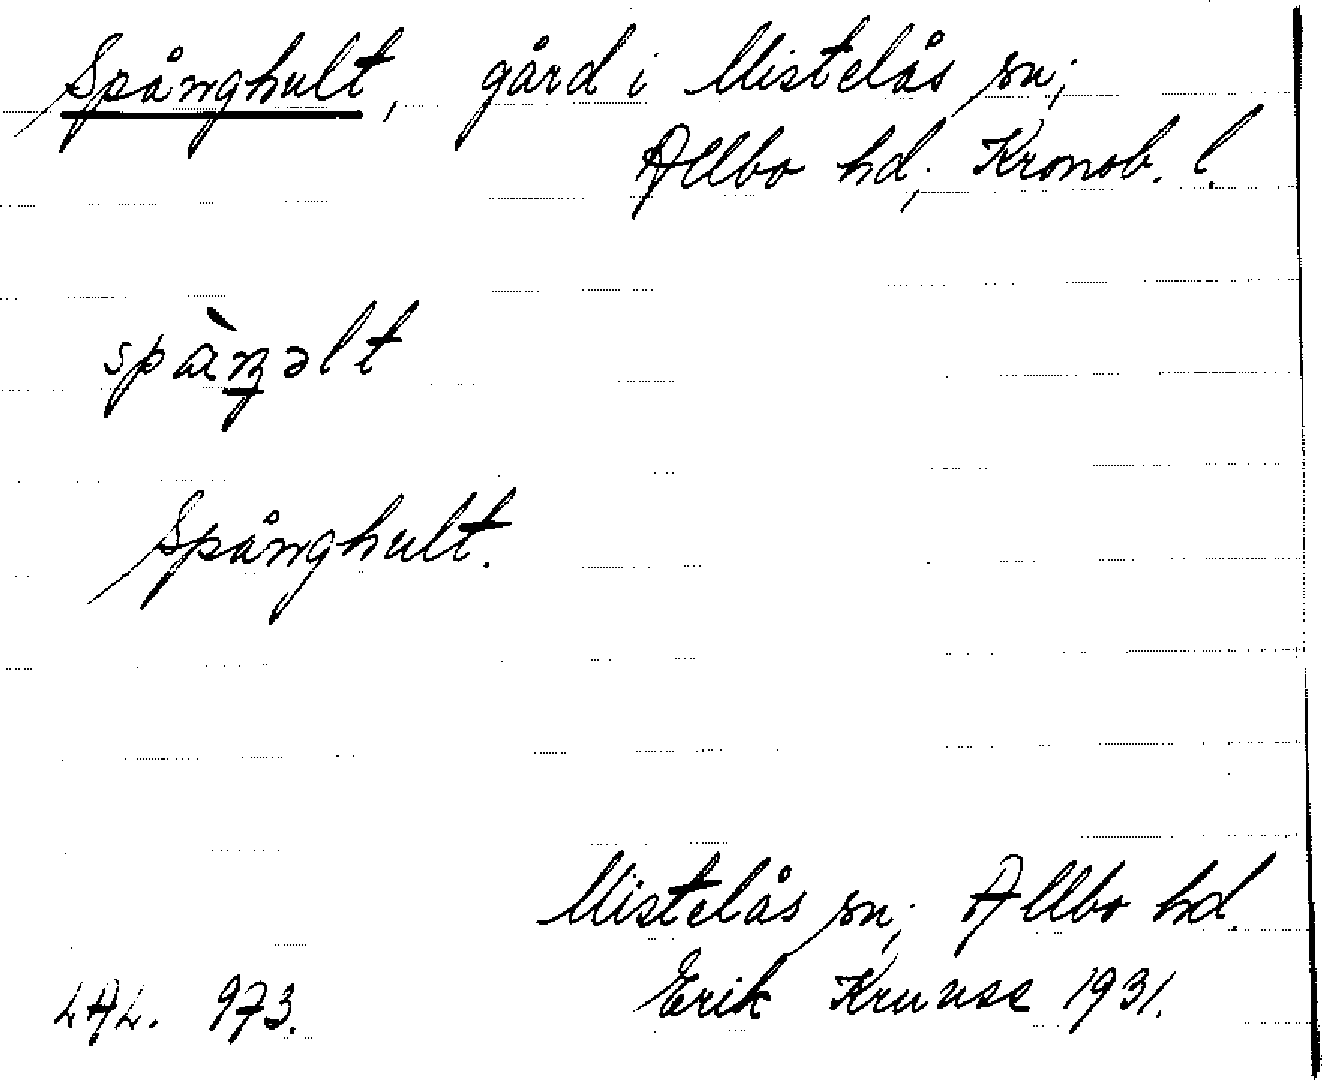 Spånghult, gård i Mistelås sn;
Allbo hd; Kronob. l.
Spånghult.
Mistelås sn; Allbo hd.
LAL. 973. Erik Kruuse 1931.